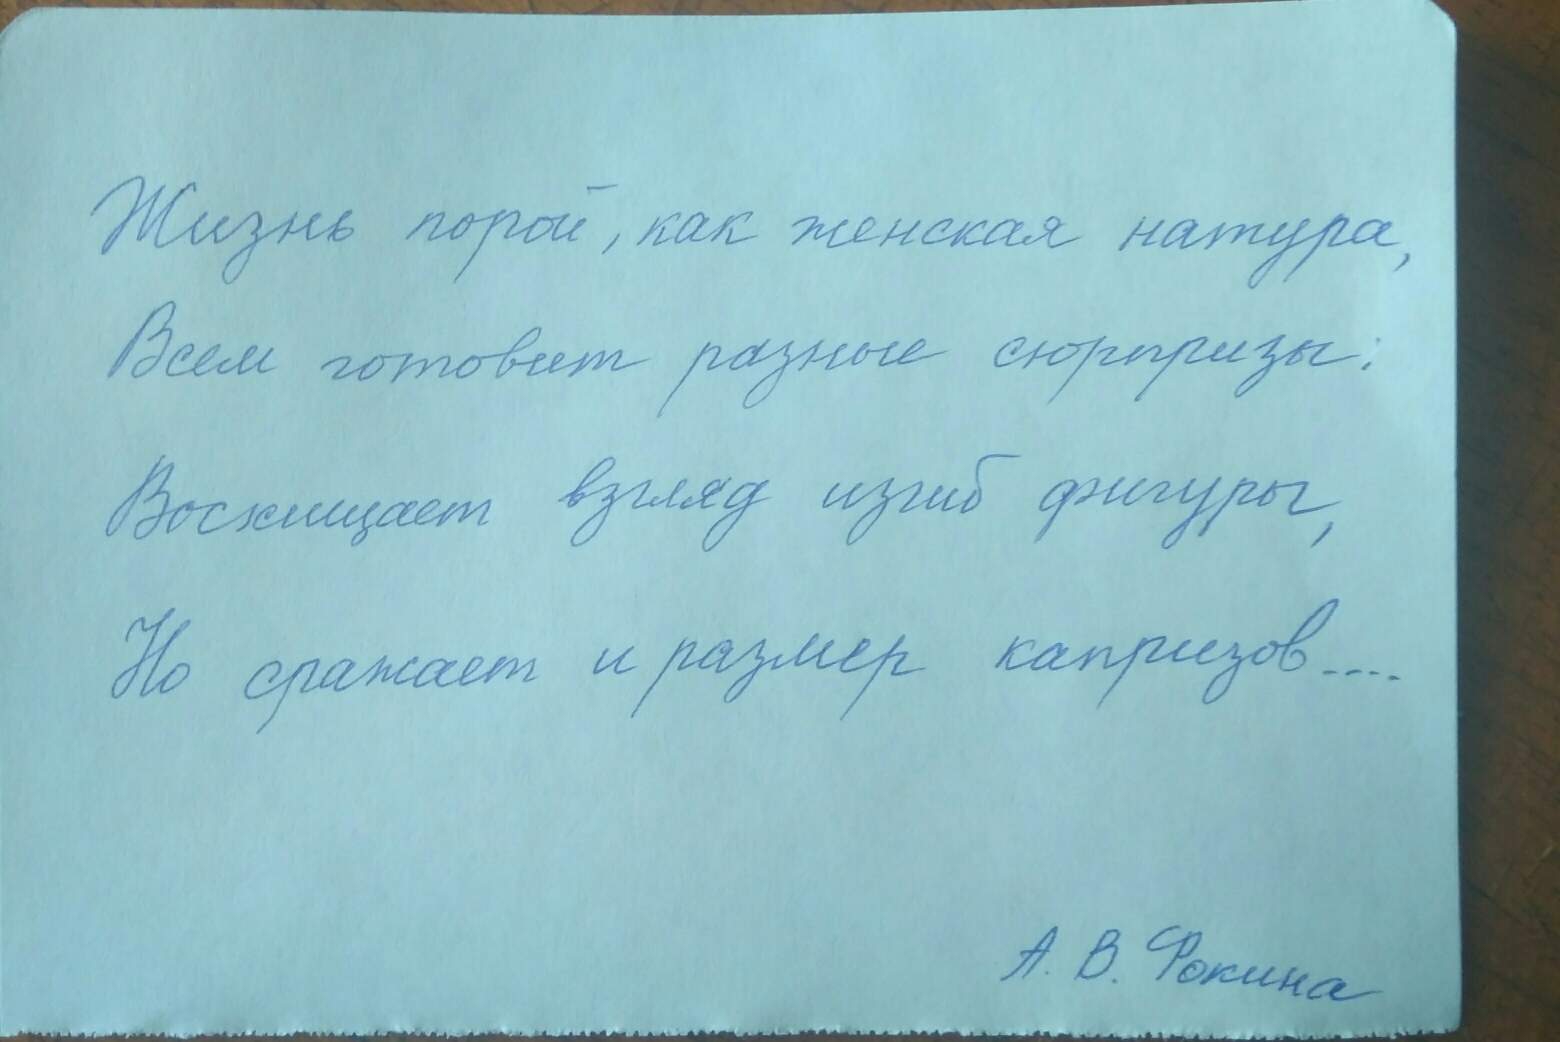 Жизнь порой, как женская натура,
Всем готовит разные сюрпризы:
Восхищает взгляд изгиб фигуры,
Но сражает и размер капризов....
А. В. Фокина